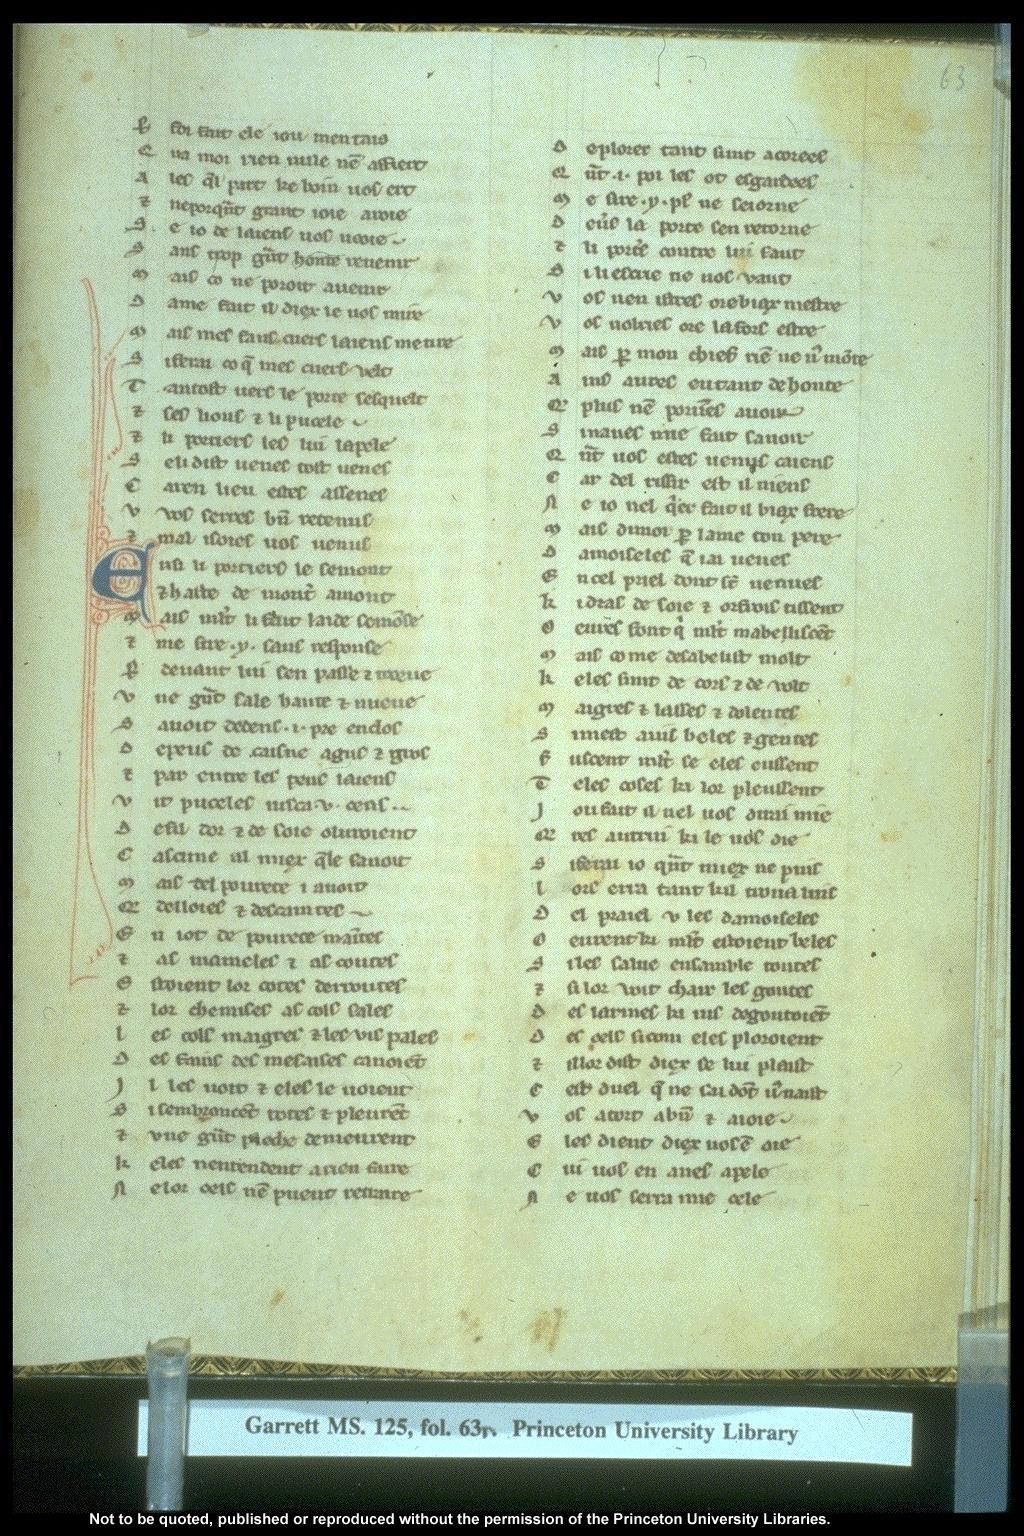 63
P foi fait ele iou mentais
C ui moi rien nule nē affiert
A les q̄l part ke boin uos ert
⁊ neporqūt grant ioie aroie
S e io de laiens uos ueoie
S ans trop gūt honte reuenir
M ais co ne poroit auenir
D ame fait il diex le uos mire
M ais mes faus cuers laiens me tire
S i ferai co q̄ mes cuers velt
T antost uers le porte
⁊ ses lions ⁊ li pucele
⁊ li portiers les lui lapele
S eli dist uenes tost uenes
C aren lieu estes assenes
V vos serres bn̄ retenus
⁊ mal i soies uos uenus
E nsi li portiers le semont
⁊ haste de monter amont
M ais mlt li fait laide semōse
⁊ me sire .y. sans response
P deuant lui sen passe ⁊ troeue
V ne gūt sale haute ⁊ nueue
S auoit dedens .i. pre enclos
D e peus de caisne agus ⁊ gros
⁊ par entre les peus laiens
V it puceles iusca .v. cens
D e fil dor ⁊ de soie ouuroient
C ascune al miex q̄le sauoit
M ais tel pouerte i auoit
Q
E n iot de pourete maītes
⁊ as mameles ⁊ as coutes
E stoient lor cotes deroutes
⁊ lor chemises as cols sales
L es cols maigres ⁊ les vis pales
D es fains des mesaises
I l les uoit ⁊ eles le uoient
S i sembroncēt totes ⁊ pleurēt
⁊ vne gūt pieche demeurent
K eles nentendent a rien faire
N e lor oels nē pueut retraire
D eplorer tant sunt acorees
Q ūt .i. poi les ot esgardees
M e sire .y. ne seiorne
D euers la porte sen retorne
⁊ li portiers contre lui saut
S i li escrie ne uos vaut
V os nen istres ore biax mestre
V os uolries ore lafors estre
M ais p mon chief riē ne uˢ mōte
A ins aures eu tant de honte
Q plus nē porries auoir
S inaues mie fait sauoir
Q ūt uos estes uenus caiens
C ar del rissir est il niens
N e io nel q̄er fait il biax frere
M ais di moi p lame ton pere
D amoiseles q̄ iai ueues
E n cel prael dont sēt uenues
K i dras de soie ⁊ orfrois tissent
O euures font q̄ mlt mabelliscēt
M ais co me desabelist molt
K eles sunt de cors ⁊ de volt
M aigres ⁊ lasses ⁊ dolentes
S i mest auis beles ⁊ gentes
F uscent mlt se eles eussent
T eles coses ki lor pleussent
I ou fait il nel uos dirai mie
Q res autrui ki le uos die
S i ferai io qūt miex ne puis
L ors erra tant kil
D el prael v les damoiseles
O eurent ki mlt estoient beles
S i les salue ensamble toutes
⁊ si lor voit chair les goutes
D es larmes ki ius degoutoiēt
D es oels sicom eles ploroient
⁊ il lor dist diex se lui plaist
C est duel q̄ ne sai dōt uˢ naist
V os atort a bn̄ ⁊ a ioie
E les dient diex uos ē oie
C ui uos en aues apele
N e uos serra mie cele
Garrett MS. 125, fol. 63r. Princeton University Library
Not to be quoted, published or reproduced without the permission of the Princeton University Libraries.